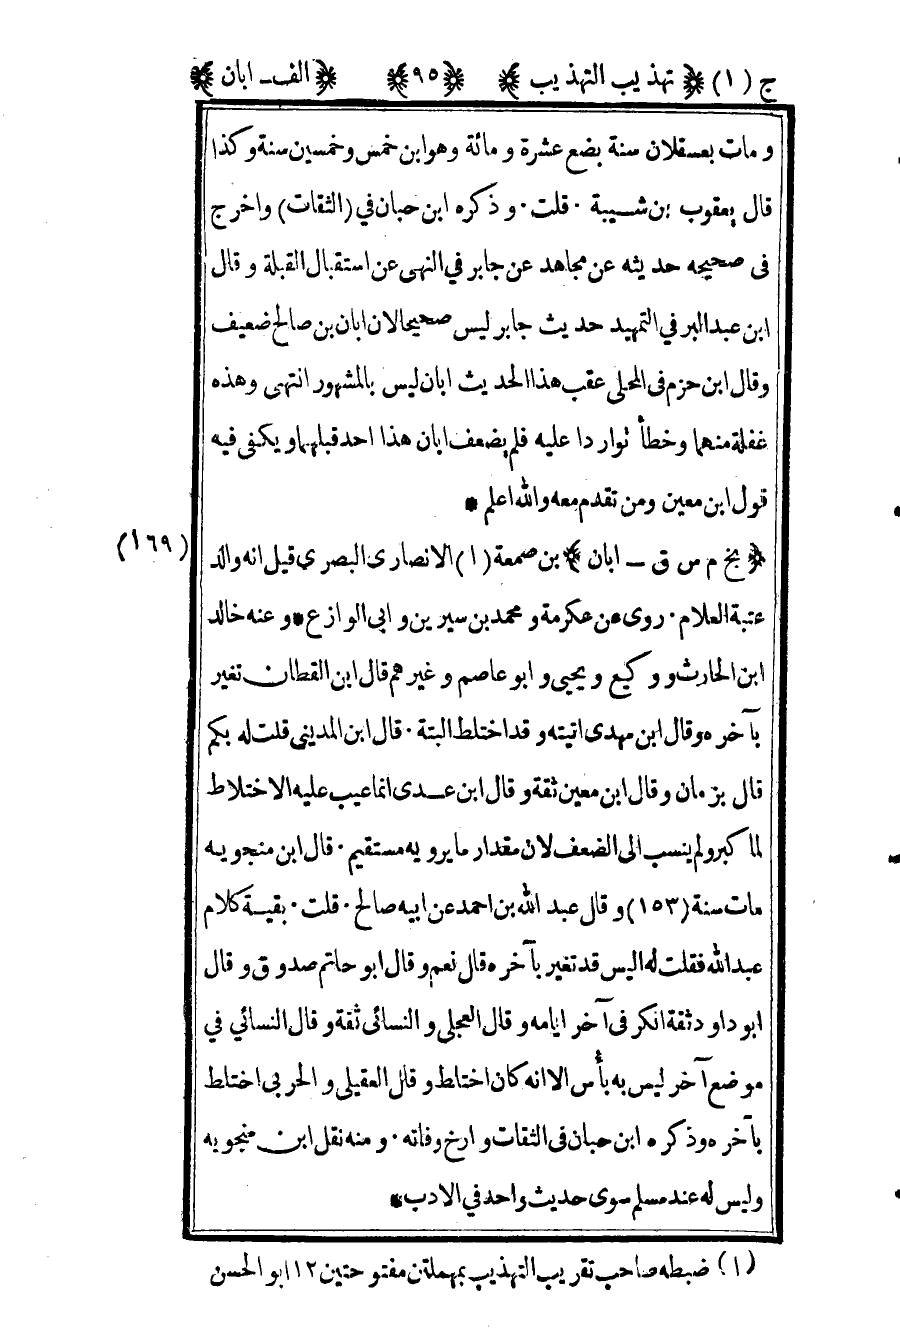 ج (١) ﴿ تهذيب التهذيب ﴾ ﴿ ٩٥ ﴾ ﴿ الف ـ ابان ﴾
و مات بعسقلان سنة بضع عشرة و مائة وهو ابن خمس وخمسين سنة و كذا
قال يعقوب بن شيبة ٠ قلت ٠ و ذكره ابن حبان في (الثقات) واخرج
في صحيحه حديثه عن مجاهد عن جابر في النهى عن استقبال القبلة و قال
ابن عبد البر في التمهيد حديث جابر ليس صحيحا لان ابان بن صالح ضعيف
وقال ابن حزم فى المحلى عقب هذا الحديث ابان ليس بالمشهور انتهى وهذه
غفلة منهما وخطأ توارد ا عليه فلم يضعف ابان هذا احد قبلهما و يكفى فيه
قول ابن معين ومن تقدم معه والله اعلم *
(١٦٩)
﴿ بخ م س ق ـ ابان ﴾ بن صمعة (١) الانصارى البصري قيل انه والد
عتبة الغلام ٠ روى عن عكرمة و محمد بن سيرين و ابي الوازع * و عنه خالد
ابن الحارث و و كيع و يحيى و ابو عاصم و غيرهم قال ابن القطان تغير
بآخره وقال ابن مهدى اتيته و قد اختلط البتة ٠ قال ابن المديني قلت له بكم
قال بزمان و قال ابن معين ثقة و قال ابن عدى انما عيب عليه الاختلاط
لما كبر ولم ينسب الى الضعف لان مقدار ما يرويه مستقيم ٠ قال ابن منجويه
مات سنة (١٥٣) و قال عبد الله بن احمد عن ابيه صالح ٠ قلت ٠ بقية كلام
عبد الله فقلت له اليس قد تغير بآخره قال نعم و قال ابو حاتم صدوق و قال
ابو داود ثقة انكر فى آخر ايامه و قال العجلى و النسائى ثقة و قال النسائي في
موضع آخر ليس به بأس الا انه كان اختلط و قال العقيلى و الحربي اختلط
بآخره وذكره ابن حبان فى الثقات و ارخ وفاته ٠ و منه نقل ابن منجويه
وليس له عند مسلم سوى حديث واحد في الادب *
(١) ضبطه صاحب تقريب التهذيب بمهملتين مفتوحتين ١٢ ابو الحسن